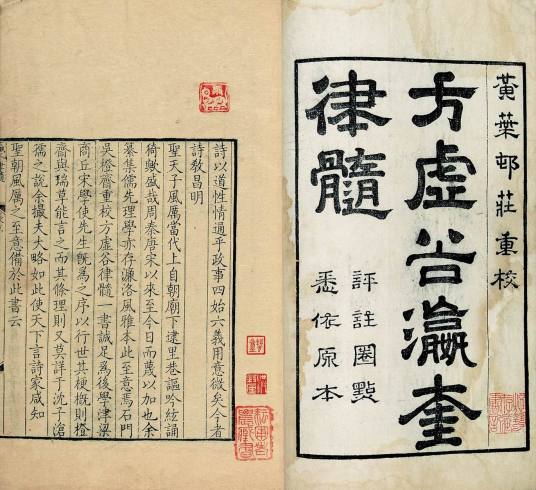 黃葉邨莊重校
方虛谷瀛奎
律髓
評註圈點
悉依原本
詩以道性情邇乎政事四始六義用意微矣今者
詩教昌明
聖天子風厲當代上自朝廟下逮里巷謳吟絃誦
猗歟盛哉周秦唐宋以來至今日而蔑以加也余
纂集儒先理學亦存濂洛風雅本此至意焉石門
吳橙齋重校方虛谷律髓一書誠足為後學津梁
商丘宋學使先生既為之序以行世其梗概則橙
齋與瑞草能言之而其條理則又莫詳于沈子滄
孺之說余撮夫大略如此使天下言詩家咸知
聖朝風厲之至意備於此書云